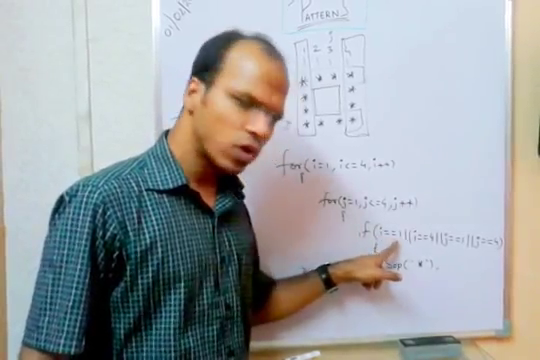 01/02/
PATTERN
j
1 2 3 4
* * * *
* *
* *
* * * *
for(i=1, i<=4, i++)
{
for(j=1, j<=4, j++)
{
if(i==1||i==4||j==1||j==4)
{
sop("*"),